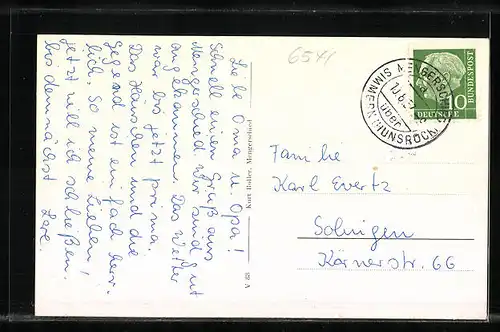 6541
Liebe Oma u. Opa!
Schnell einen Gruß aus
Mengerschied. Wir sind gut
angekommen. Das Wetter
war bis jetzt prima.
Das Häuschen und die
Gegend ist einfach herr-
lich. So meine Lieben,
jetzt will ich schließen.
bis demnächst
Kurt Boller, Mengerschied
MENGERSCHIED
über
SIMMERN (HUNSRÜCK)
10
DEUTSCHE
BUNDESPOST
Familie
Karl Evertz
Solingen
Körnerstr. 66